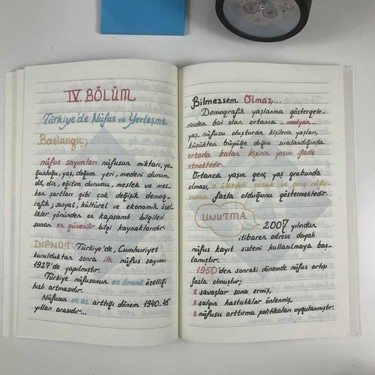 IV. BÖLÜM
Türkiye'de Nüfus ve Yerleşme
Başlangıç;
nüfus sayımları nüfusun miktarı, ya-
ş, doğum yeri, medeni durum,
dil, din, eğitim durumu, meslek ve mes-
ken şartları gibi çok değişik demog-
rafik, sosyal, kültürel ve ekonomik özel-
likler yönünden en kapsamlı bilgileri
sunan en güvenilir bilgi kaynaklarıdır.
DİPNOT: Türkiye'de, Cumhuriyet
kurulduktan sonra ilk nüfus sayımı
1927'de yapılmıştır.
Türkiye nüfusunun en önemli özelliği
hızlı artmasıdır.
Nüfusun en az arttığı dönem 1940-45
yılları arasıdır...
Bilmezsem Olmaz...
Demografik yaşlanma göstergele-
rinden biri olan ortanca - medyan -
yaş, nüfusu oluşturan kişilerin yaşları,
küçükten büyüğe doğru sıralandığında
ortada kalan kişinin yaşını ifade
etmektedir.
Ortanca yaşın genç yaş grubunda
olması, o ülkedeki çocuk ve genç nüfusun
fazla olduğunu göstermektedir.
UNUTMA
2007 yılından
itibaren adrese dayalı
nüfus kayıt sistemi kullanılmaya baş-
lamıştır.
1950'den sonraki dönemde nüfus artışı
fazla olmuştur;
savaşlar sona ermiş,
salgın hastalıklar önlenmiş,
nüfusu arttırma politikaları uygulanmıştır.